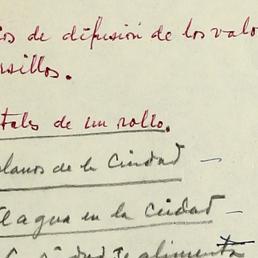 os de difusión de los valo
rsillos.
tales de un rollo.
planos de la Ciudad —
El agua en la ciudad —
ciudad se alimenta